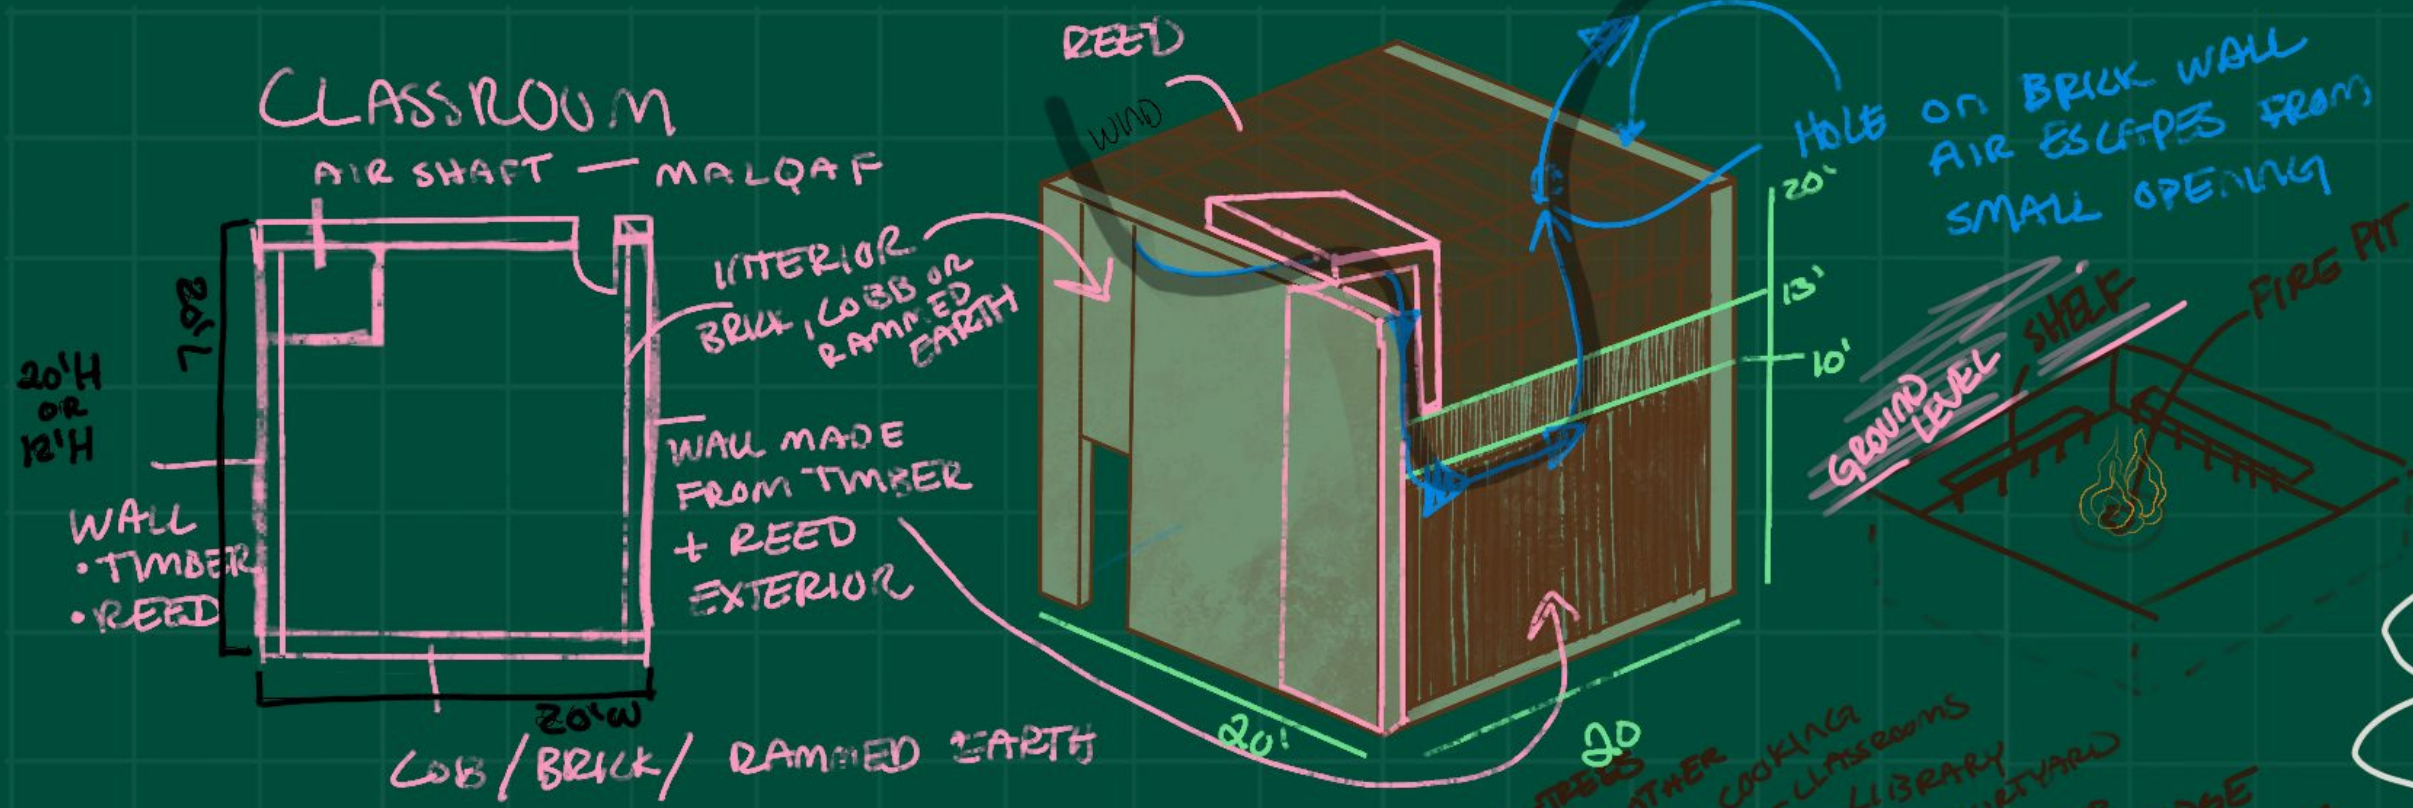 CLASSROOM
AIR SHAFT — MALQAF
20'L
20'H
OR
12'H
WALL
• TIMBER
• REED
20'W
COB/BRICK/ RAMMED EARTH
INTERIOR
BRICK, COBB OR
RAMMED
EARTH
WALL MADE
FROM TIMBER
+ REED
EXTERIOR
REED
WIND
HOLE ON BRICK WALL
AIR ESCAPES FROM
SMALL OPENING
20'
13'
10'
20'
20
GROUND
LEVEL
SHELF
FIRE PIT
TREES
COOKING
CLASSROOMS
LIBRARY